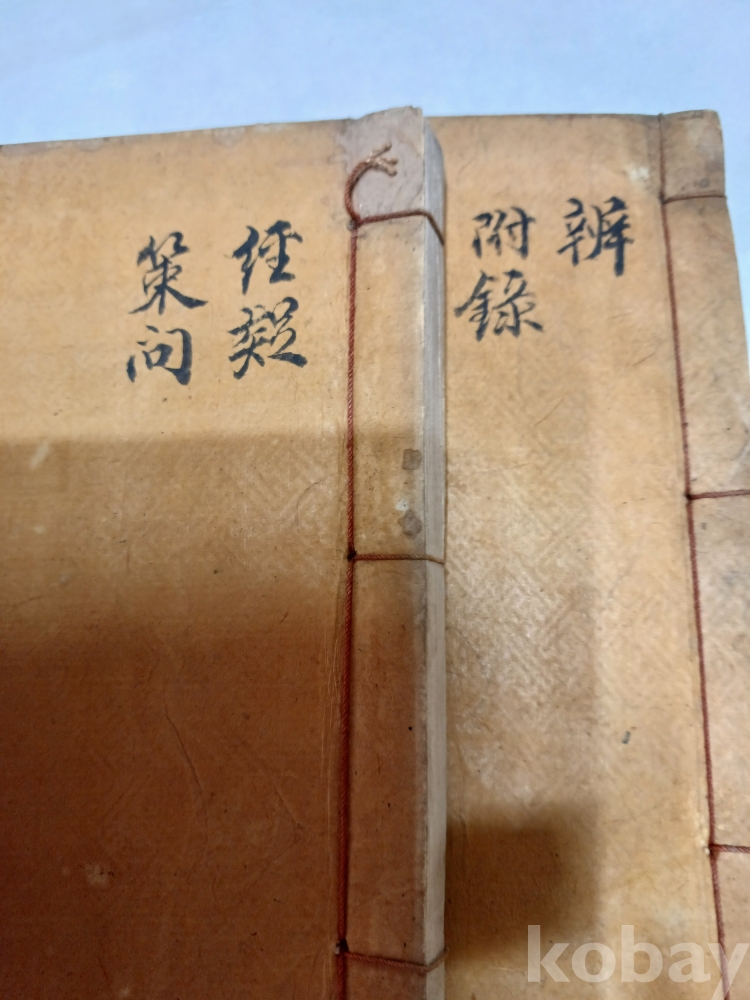 辨
附錄
經疑
策问
kobay